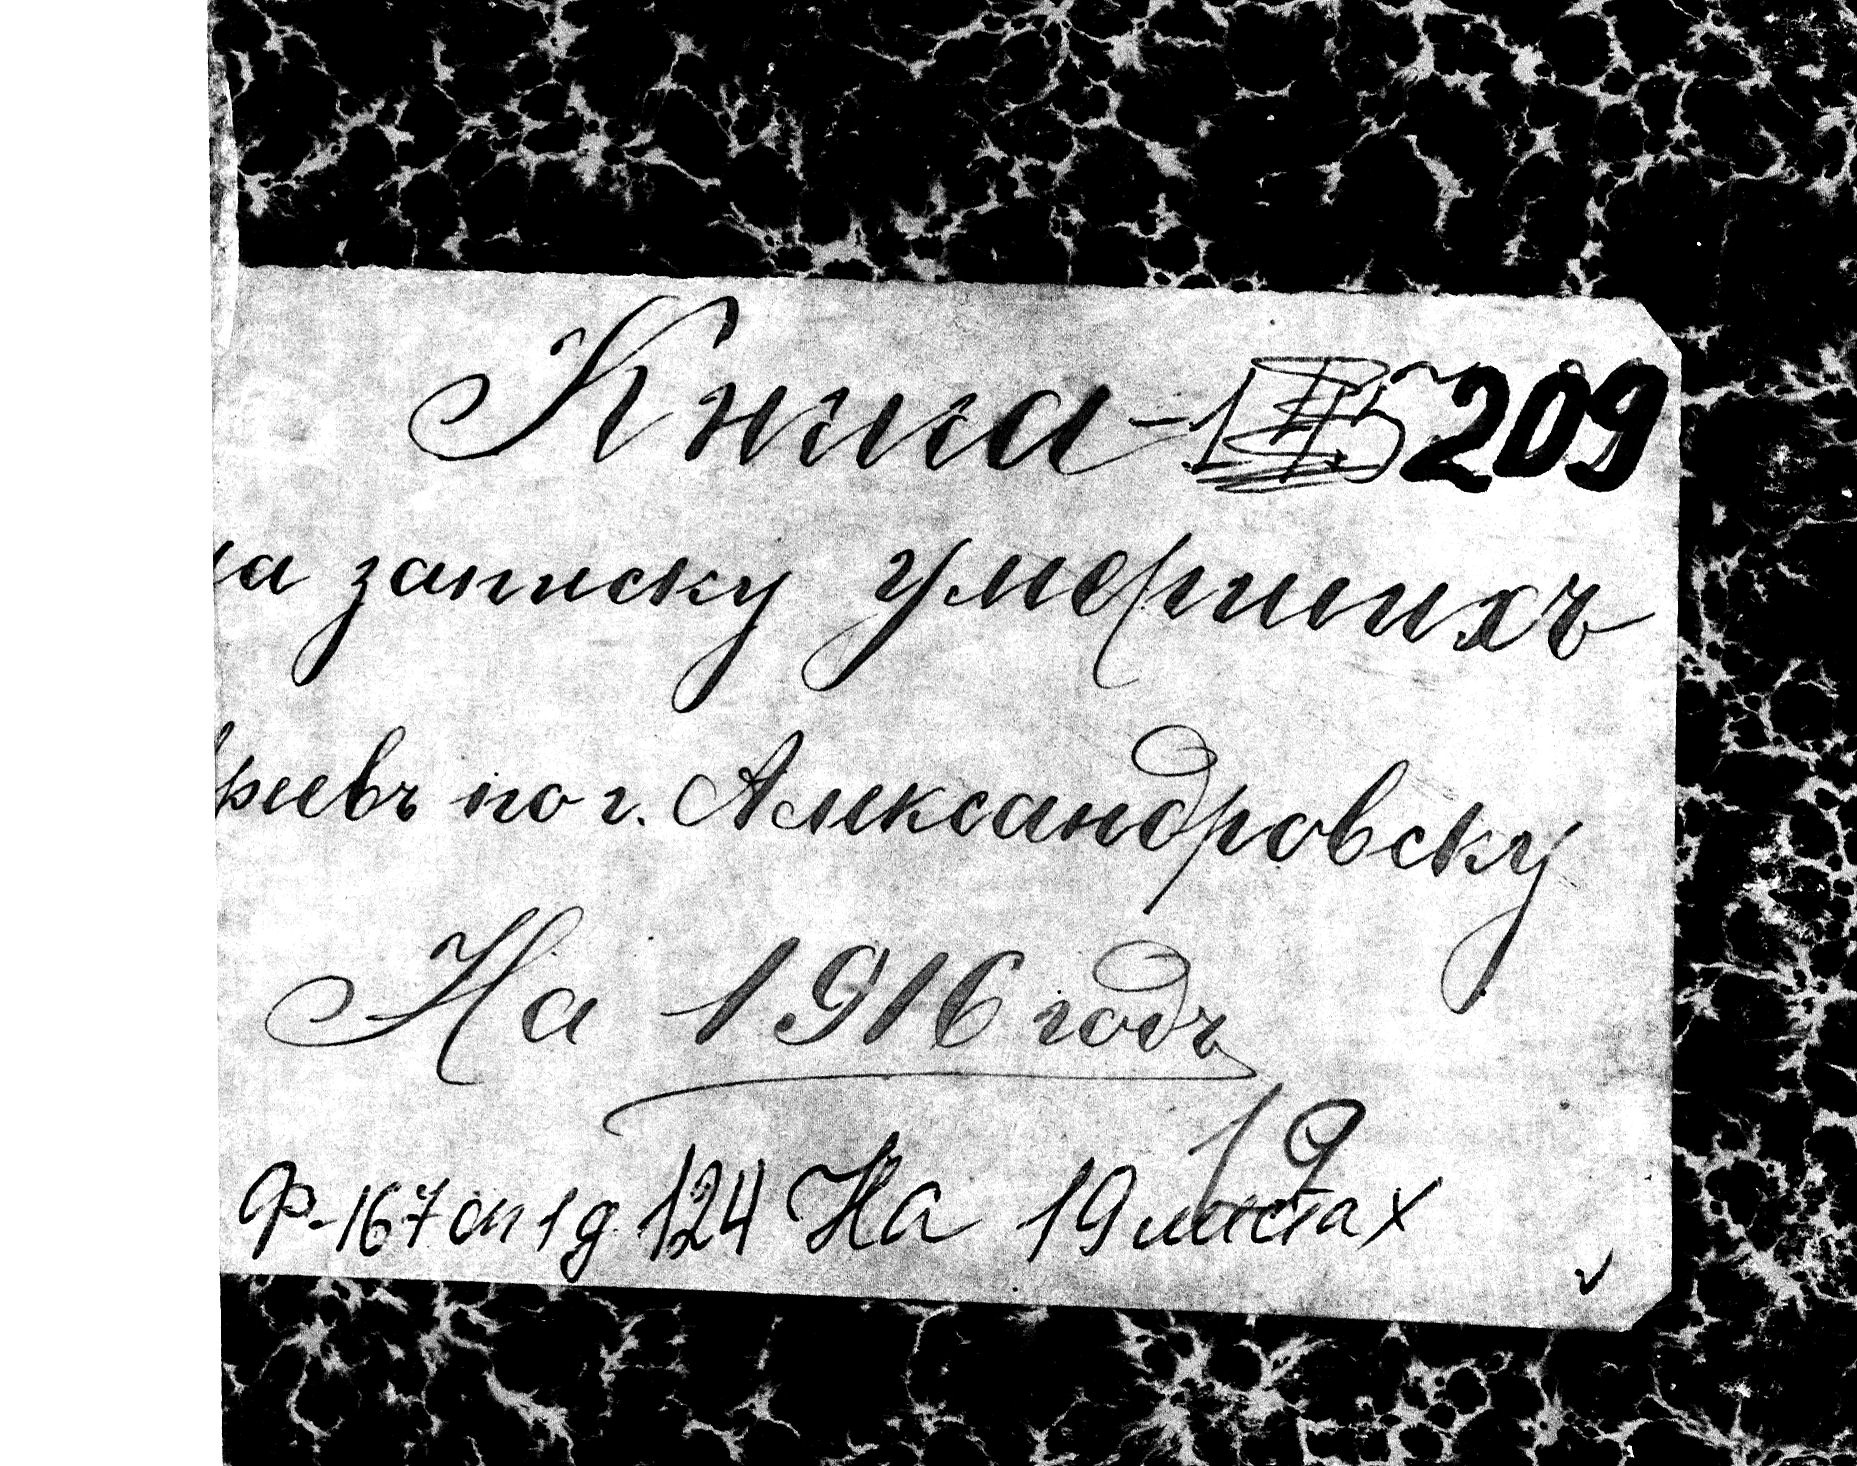 Книга 209
на записку умершихъ
реевъ по г. Александровску
На 1916 годъ
19
Ф-167 оп 1 д 124 На 19 листах